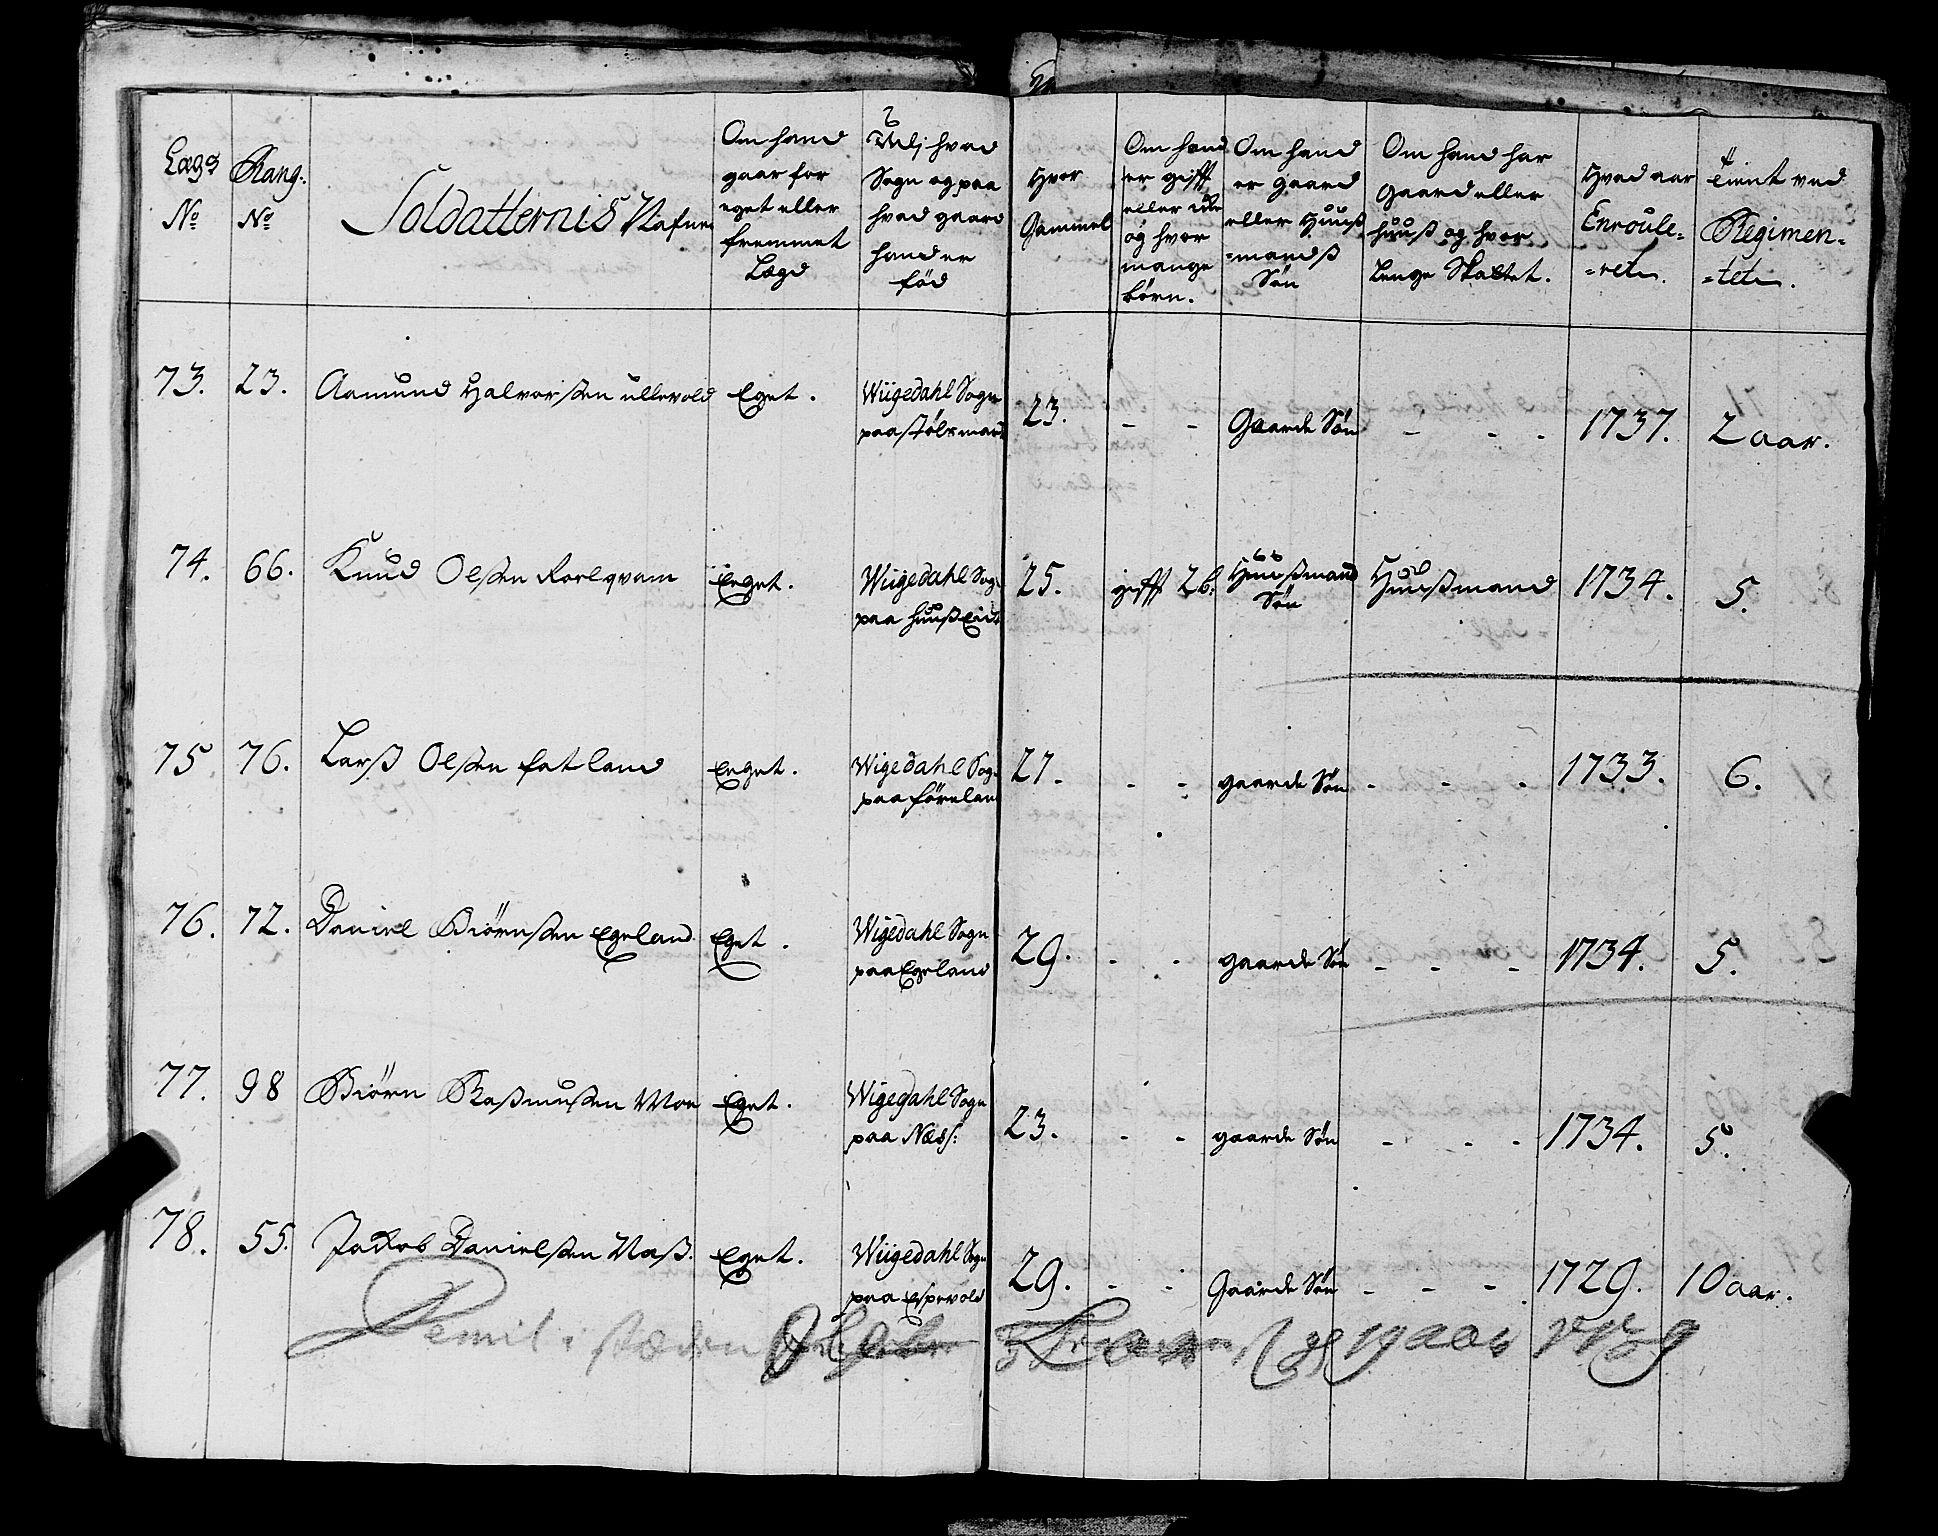 Lægs
No
Rang:
No
Soldatternis Nafne
Om hand
gaar for
eget eller
fremmet
Lægd
Udj hvad
Sogn og paa
hvad gaard
hand er
föd
Hvor
Gammel
Om hand
er gifft
eller icke
og hvor
mange
börn.
Om hand
er gaard
eller Huuß
=mandß
Sön
Om hand har
gaard eller
huuß og hvor
Lenge Skattet.
Hvad aar
Enroule=
=ret.
Tient ved
Regimen=
=tet.
73. 23. Aamund Halvorßen ullevold Eget. Wiigedahl Sogn
paa Stölsmard 23. - - Gaarde Sön - - - 1737. 2 aar.
74. 66. Knud Olßen Roelqvam Eeget. Wiigedahl Sog
paa huuß Eide 25. gifft 2 b: Huußmand
Sön Huußmand 1734. 5.
75 76. Larß Olßen fatland Eeget. Wigedahl Sog
paa förelan 27. - - gaarde Sön - - - 1733. 6.
76. 72. Daniel Biörnßen Egeland Eget. Wigedahl Sogn
paa Egeland 29. - - gaarde Sön - - - 1734. 5.
77. 98 Biörn Raßmußen Moe Eget. Wigedahl Sogn
paa Næss: 23. - - gaarde Sön - - - 1734. 5.
78. 55. Jackob Danielßen Naß. Eget. Wiigedahl Sogn
paa Espevold 29. - - Gaarde Sön - - - 1729. 10 aar.
i stæden 19 aar 1739